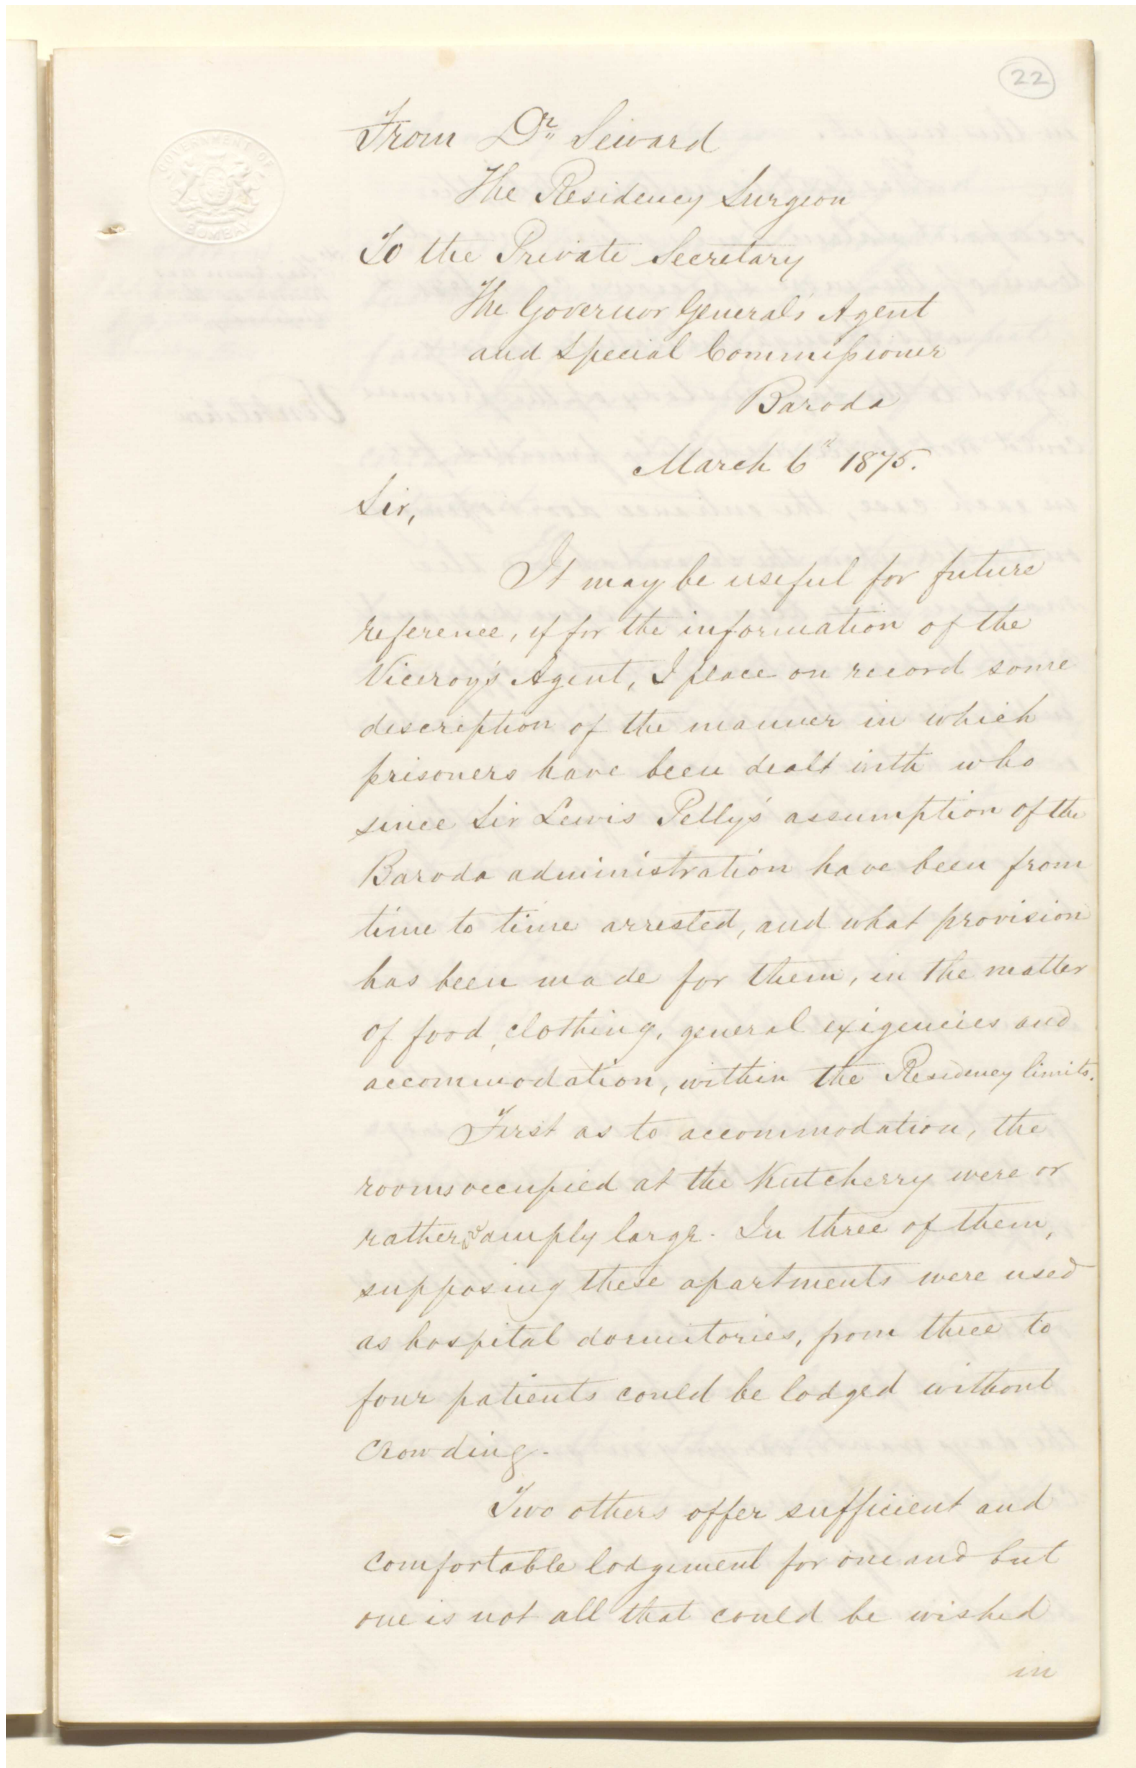 22
GOVERNMENT OF
BOMBAY
From Dr. Seward
The Residency Surgeon
To the Private Secretary
The Governor General's Agent
and Special Commissioner
Baroda
March 6th 1875.
Sir,
It may be useful for future
reference, if for the information of the
Viceroy's Agent, I place on record some
description of the manner in which
prisoners have been dealt with who
since Sir Lewis Pelly's assumption of the
Baroda administration have been from
time to time arrested, and what provision
has been made for them, in the matter
of food, clothing, general exigencies and
accommodation, within the Residency limits.
First as to accommodation, the
rooms occupied at the Kutcherry were or
rather amply large. In three of them,
supposing these apartments were used
as hospital dormitories, from three to
four patients could be lodged without
crowding.
Two others offer sufficient and
comfortable lodgement for one and but
one is not all that could be wished
in